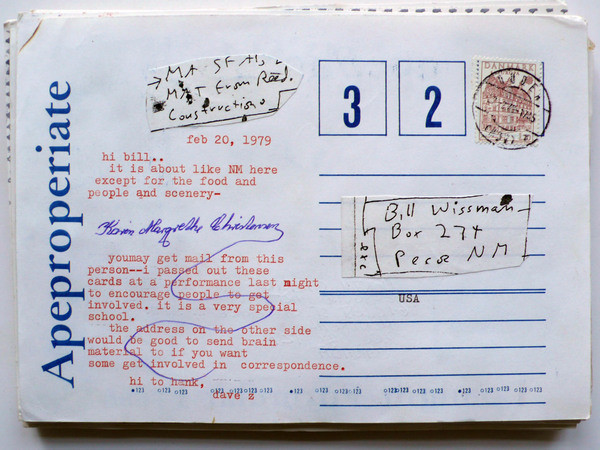 Apeproperiate
→ MA St Als
MAT From Reed.
Construction
3 2
DANMARK
feb 20, 1979
hi bill..
it is about like NM here
except for the food and
people and scenery-
Karin Margrethe Christensen
youmay get mail from this
person--i passed out these
cards at a performance last night
to encourage people to get
involved. it is a very special
school.
the address on the other side
would be good to send brain
material to if you want
some get involved in correspondence.
hi to hank,
dave z
Bill Wissman
Box 274
Pecos NM
etc
USA
●123 ○123 ○123 ○123 ○123 ○123 ○123 ○123 ○123 ○123 ○123 ○123